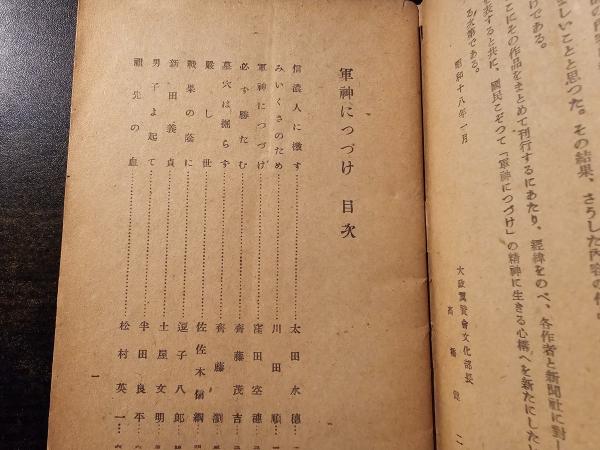 しいことと思つた。その結果、さうした内容の作
けである。
こにその作品をまとめて刊行するにあたり、經緯をのべ、各作者と新聞社に對し
を表すると共に、國民こぞつて「軍神につづけ」の精神に生きる心構へを新たにしたい
る次第である。
昭和十八年一月
大政翼賛會文化部長
高橋健二
軍神につづけ 目次
信濃人に檄す……太田水穗
みいくさのため……川田順
軍神につづけ……窪田空穗
必ず勝たむ……齋藤茂吉
墓穴は掘らず……齋藤瀏
嚴し世……佐佐木信綱
戰果の蔭に……逗子八郎
新田義貞……土屋文明
男子よ起て……半田良平
祖先の血……松村英一
一